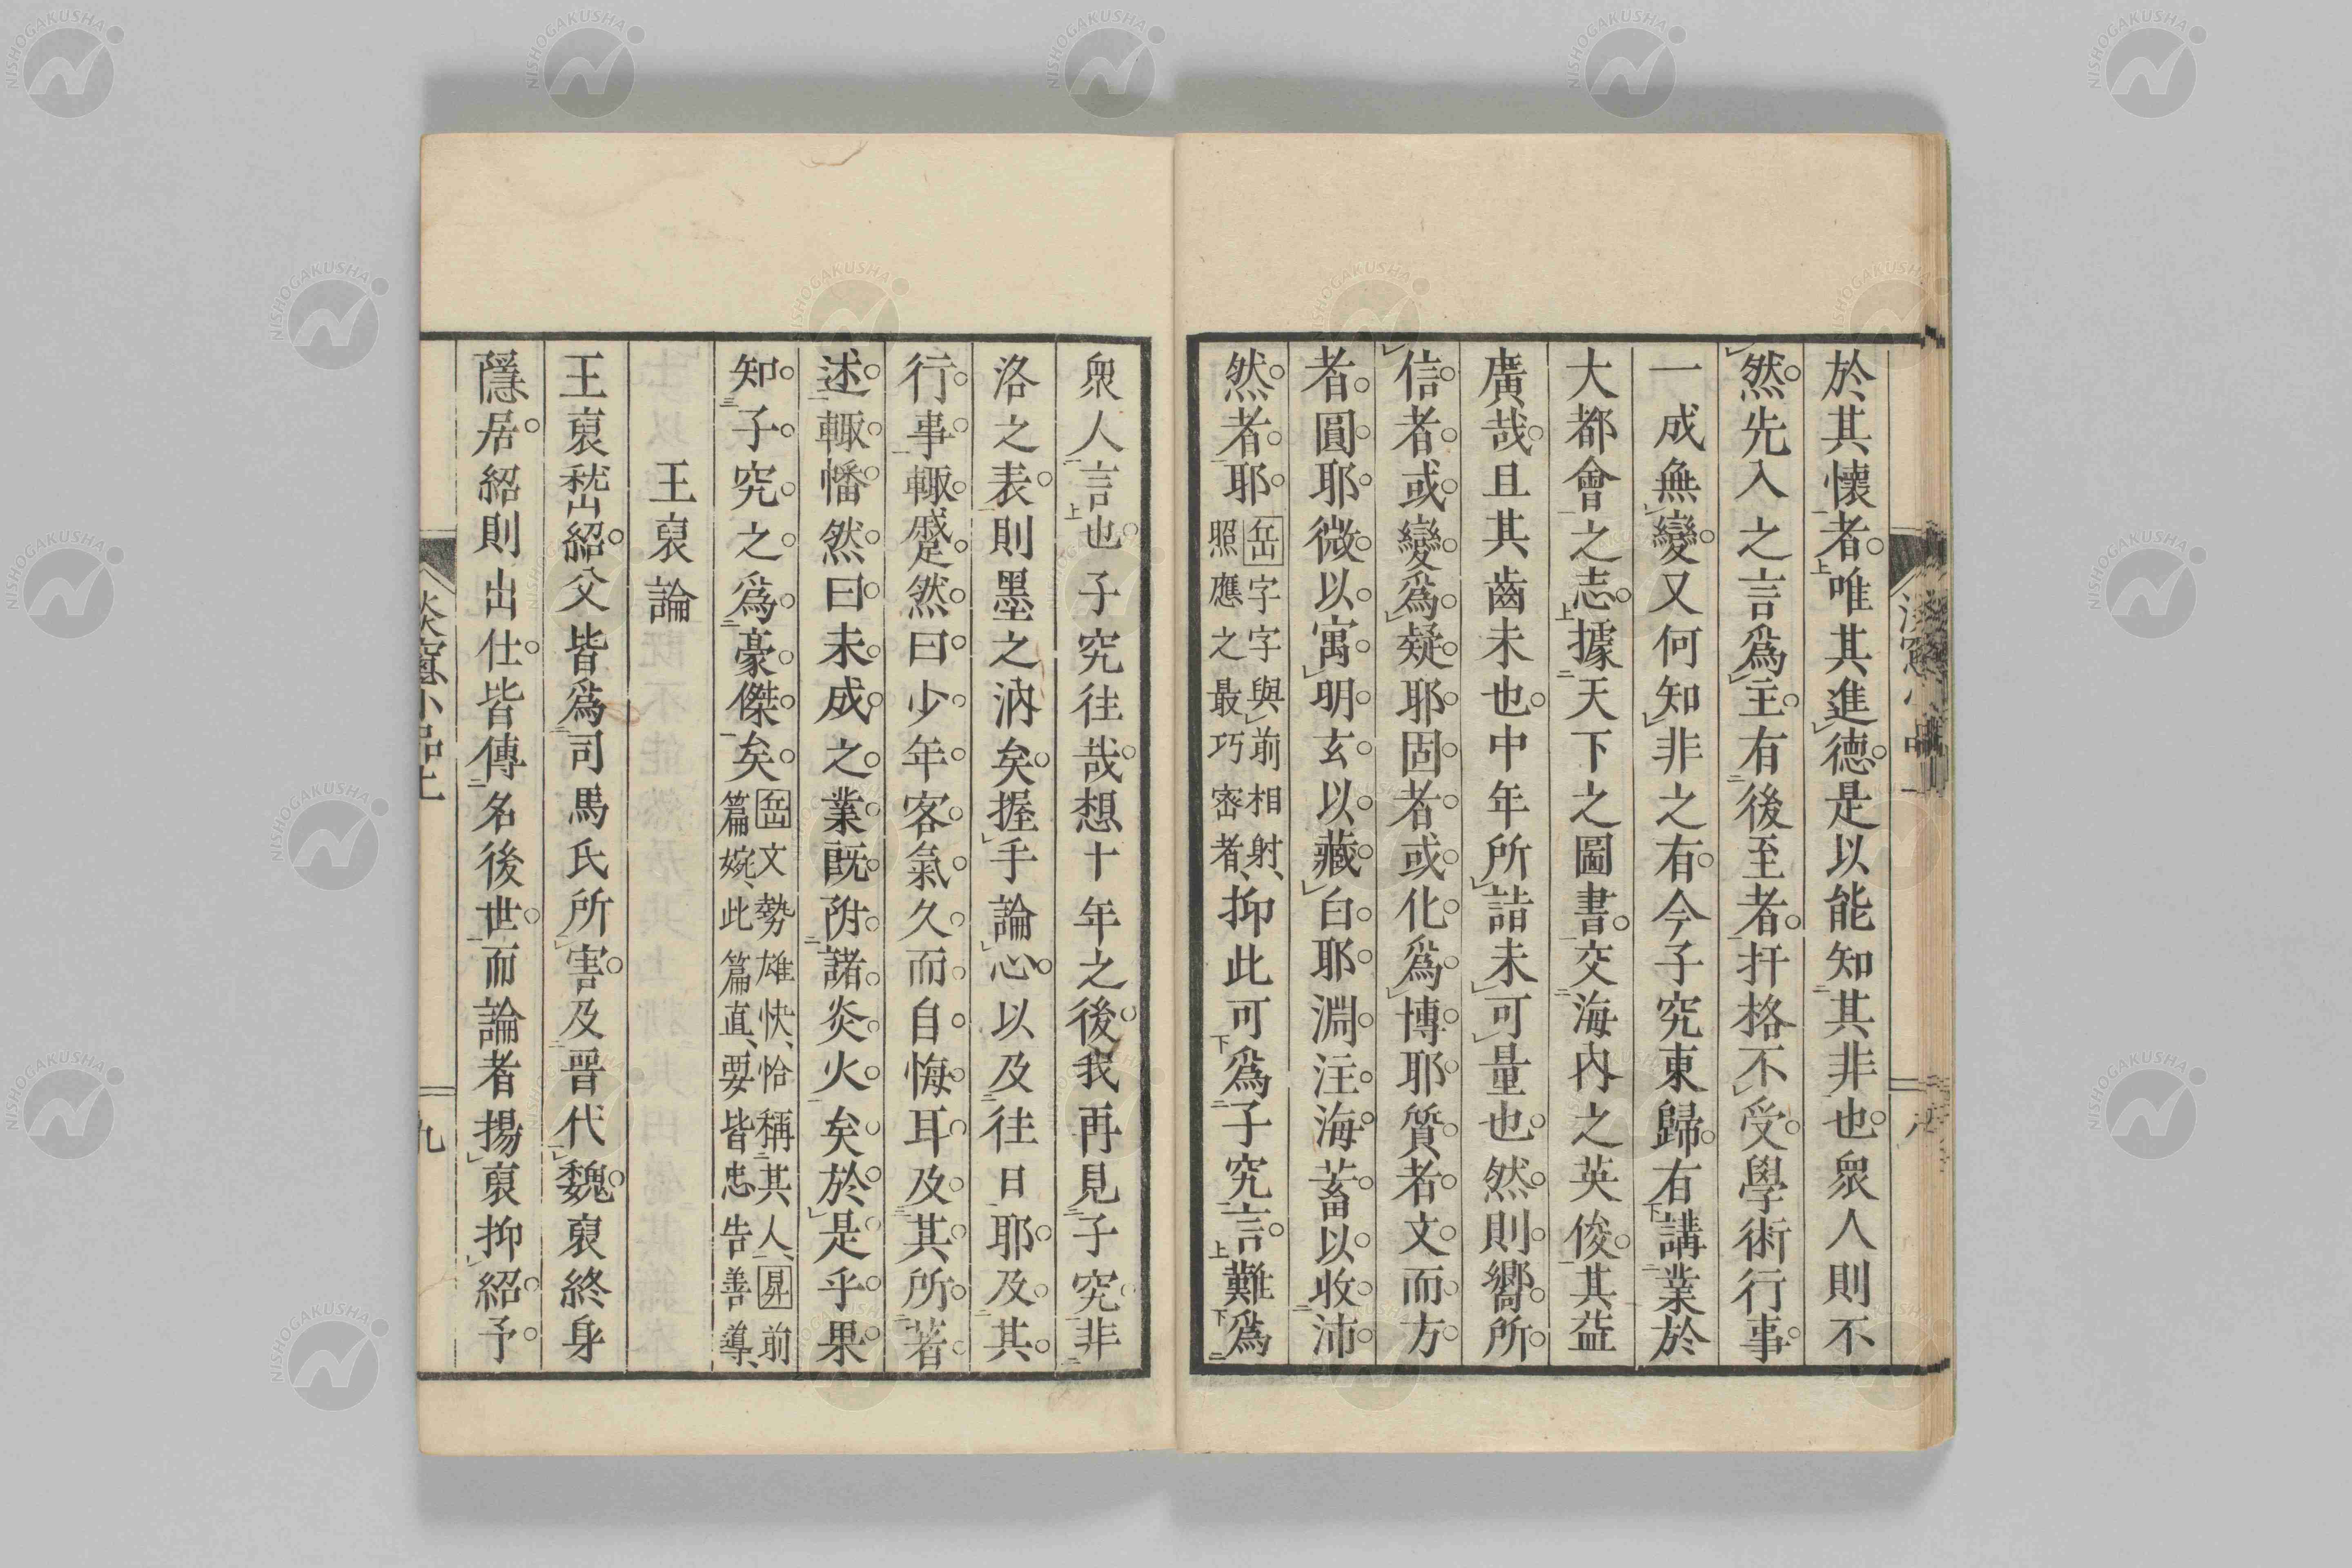 於其懷者唯其進德是以能知其非也衆人則不
然先入之言爲主有後至者扞格不受學術行事
一成無變又何知非之有今子究東歸右講業於
大都會之志據天下之圖書交海內之英俊其益
廣哉且其齒未也中年所詣未可量也然則嚮所
信者或變爲疑耶固者或化爲博耶質者文而方
者圓耶微以寓明玄以藏白耶淵注海蓄以收沛
然者耶岳字字與前相射、照應之最巧密者、抑此可爲子究言難爲
衆人言也子究往哉想十年之後我再見子究非
洛之表則墨之汭矣握手論心以及往日耶及其
行事輙蹙然曰少年客氣久而自悔耳及其所著
述輙幡然曰未成之業既附諸炎火矣於是乎果
知子究之爲豪傑矣岳文勢雄快、恰稱其人、昇前篇婉、此篇直、要皆忠告善導、
王裒論
王裒嵇紹父皆爲司馬氏所害及晋代魏裒終身
隱居紹則出仕皆傳名後世而論者揚裒抑紹予
小品上
九
NISHOGAKUSHA